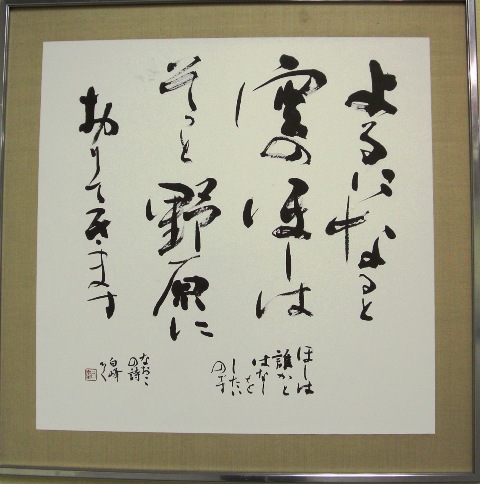 よるになると
空のほしは
そっと野原に
おりてきます
ほしは
誰かと
はなしを
したい
のです
なおこ
の詩
白峰
かく